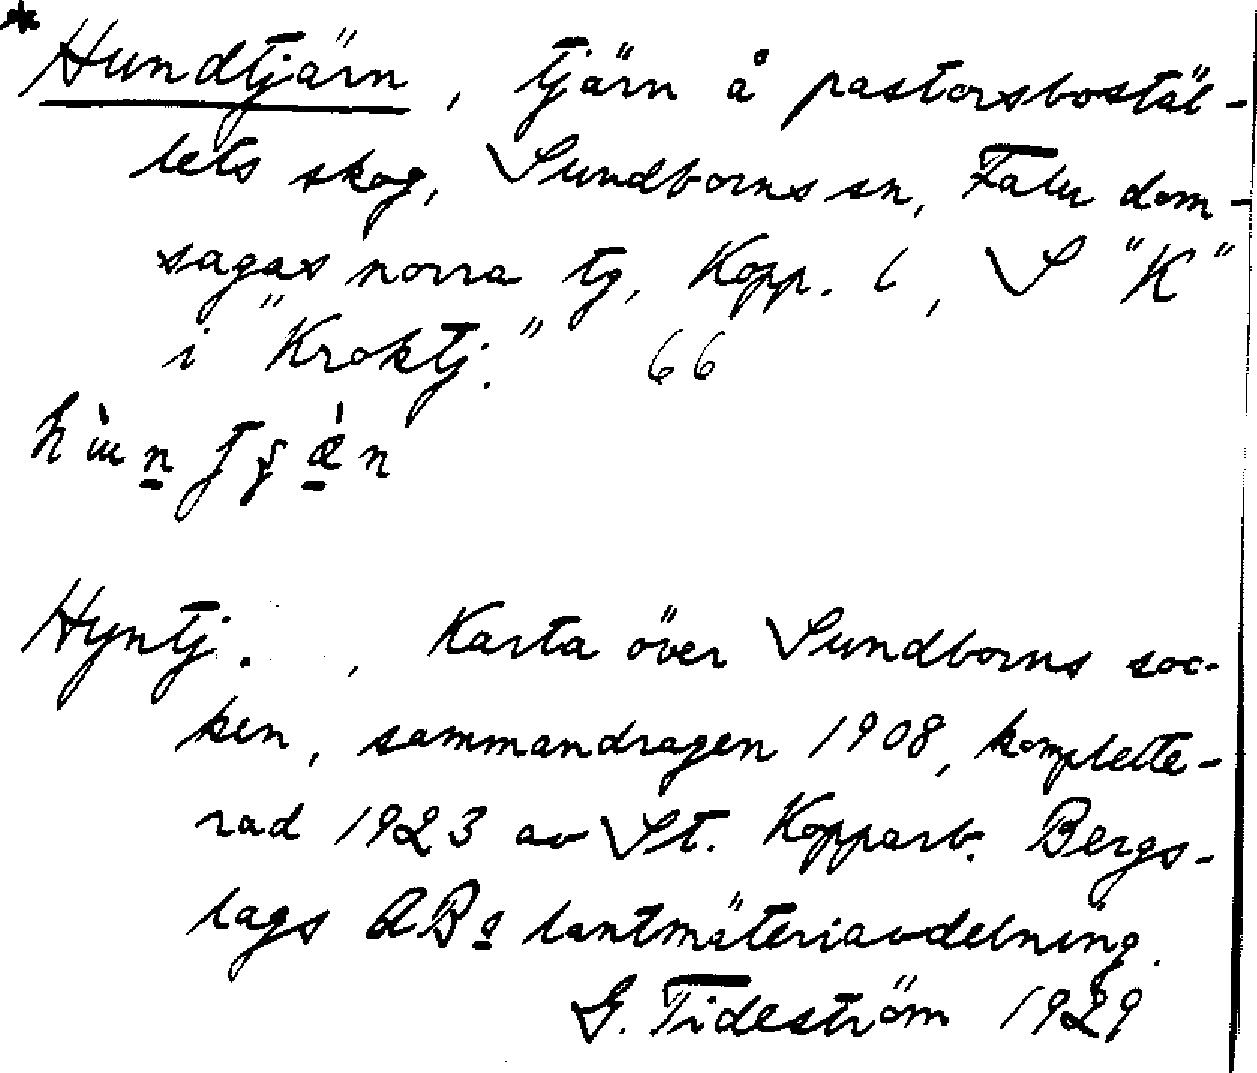 *Hundtjärn, tjärn å pastorsbostäl-
lets skog, Sundborns sn, Falu dom-
sagas norra tg, Kopp. l, S "K"
i "Kroktj." 66
Hyntj. , Karta över Sundborns soc-
ken, sammandragen 1908, komplette-
rad 1923 av St. Kopparb. Bergs-
lags AB:s lantmäteriavdelning.
G. Tideström 1929